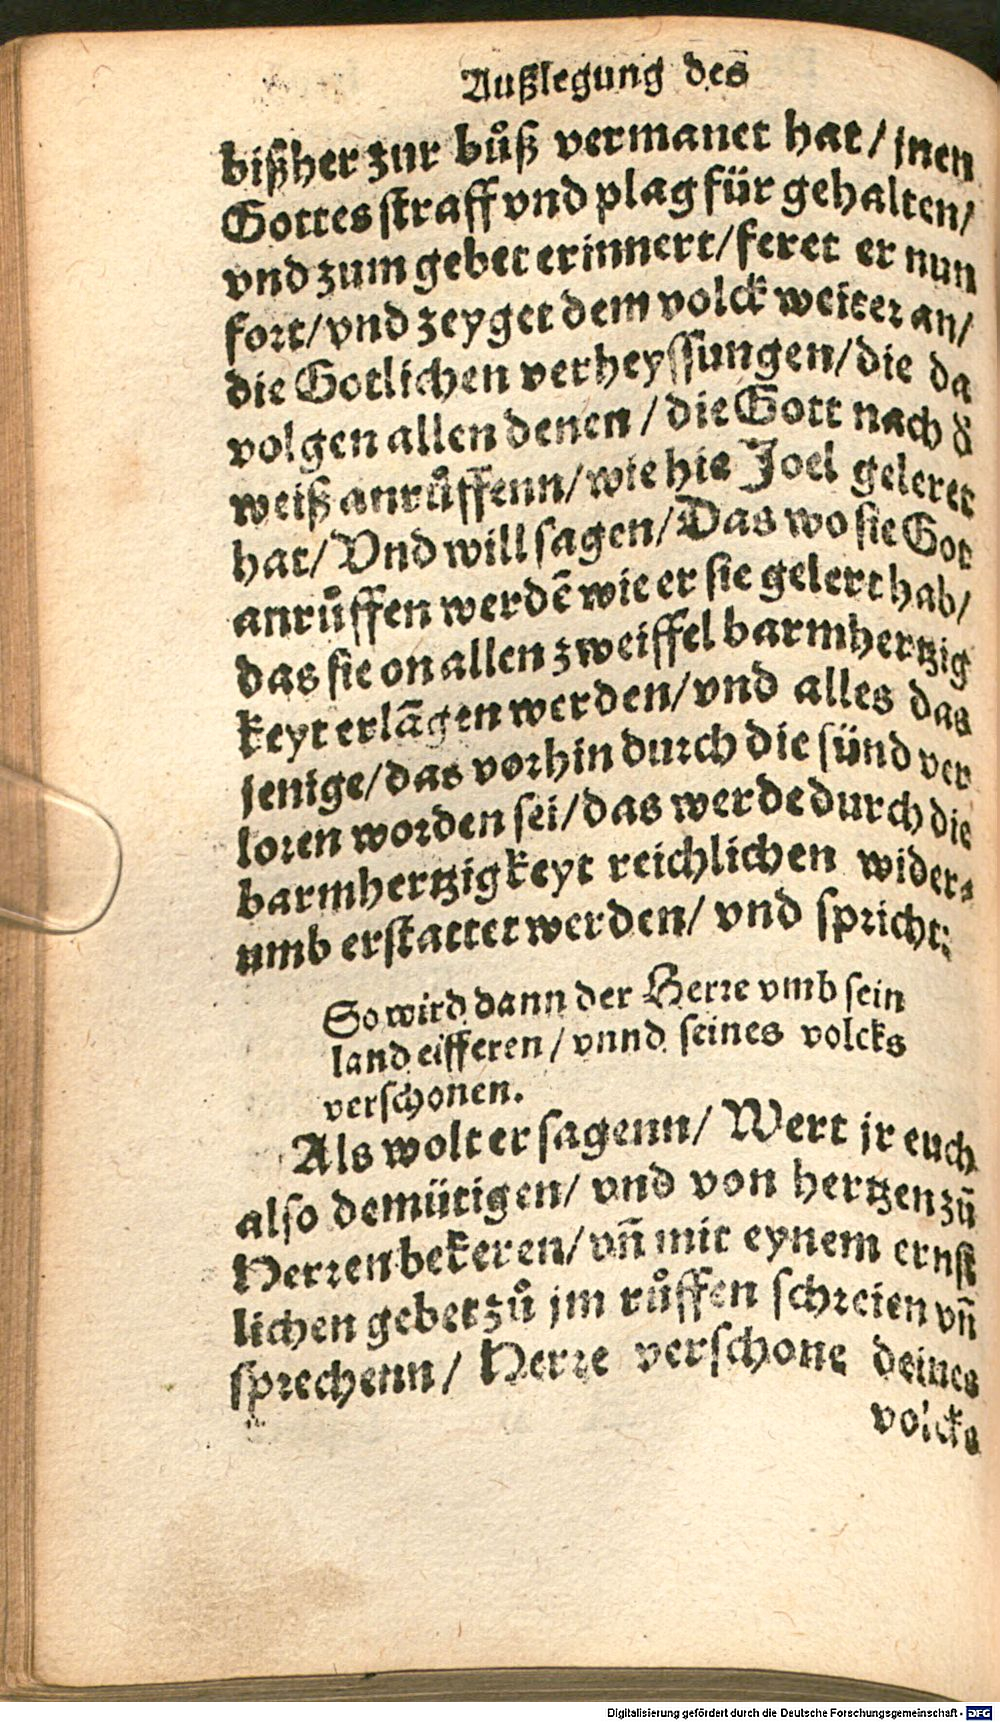 Außlegung des
bißher zur buͦß vermanet hat / jnen
Gottes straff vnd plag für gehalten /
vnd zum gebet erinnert / feret er nun
fort / vnd zeyget dem volck weiter an /
die Gotlichen verheyssungen / die da
volgen allen denen / die Gott nach d̕
weiß anruͦffenn / wie hie Joel geleret
hat / Vnd will sagen / Das wo sie Got
anruͦffen werdē wie er sie gelert hab /
das sie on allen zweiffel barmhertzig
keyt erlāgen werden / vnd alles das
jenige / das vorhin durch die sünd ver
loren worden sei / das werde durch die
barmhertzigkeyt reichlichen wider⸗
umb erstattet werden / vnd spricht:
So wird dann der Herre vmb sein
land eifferen / vnnd seines volcks
verschonen.
Als wolt er sagenn / Wert jr euch
also demütigen / vnd von hertzen zū
Herren bekeren / vn̄ mit eynem ernst
lichen gebet zuͦ jm ruͦffen schreien vn̄
sprechenn / Herre verschone deines
volcks
Digitalisierung gefördert durch die Deutsche Forschungsgemeinschaft - DFG